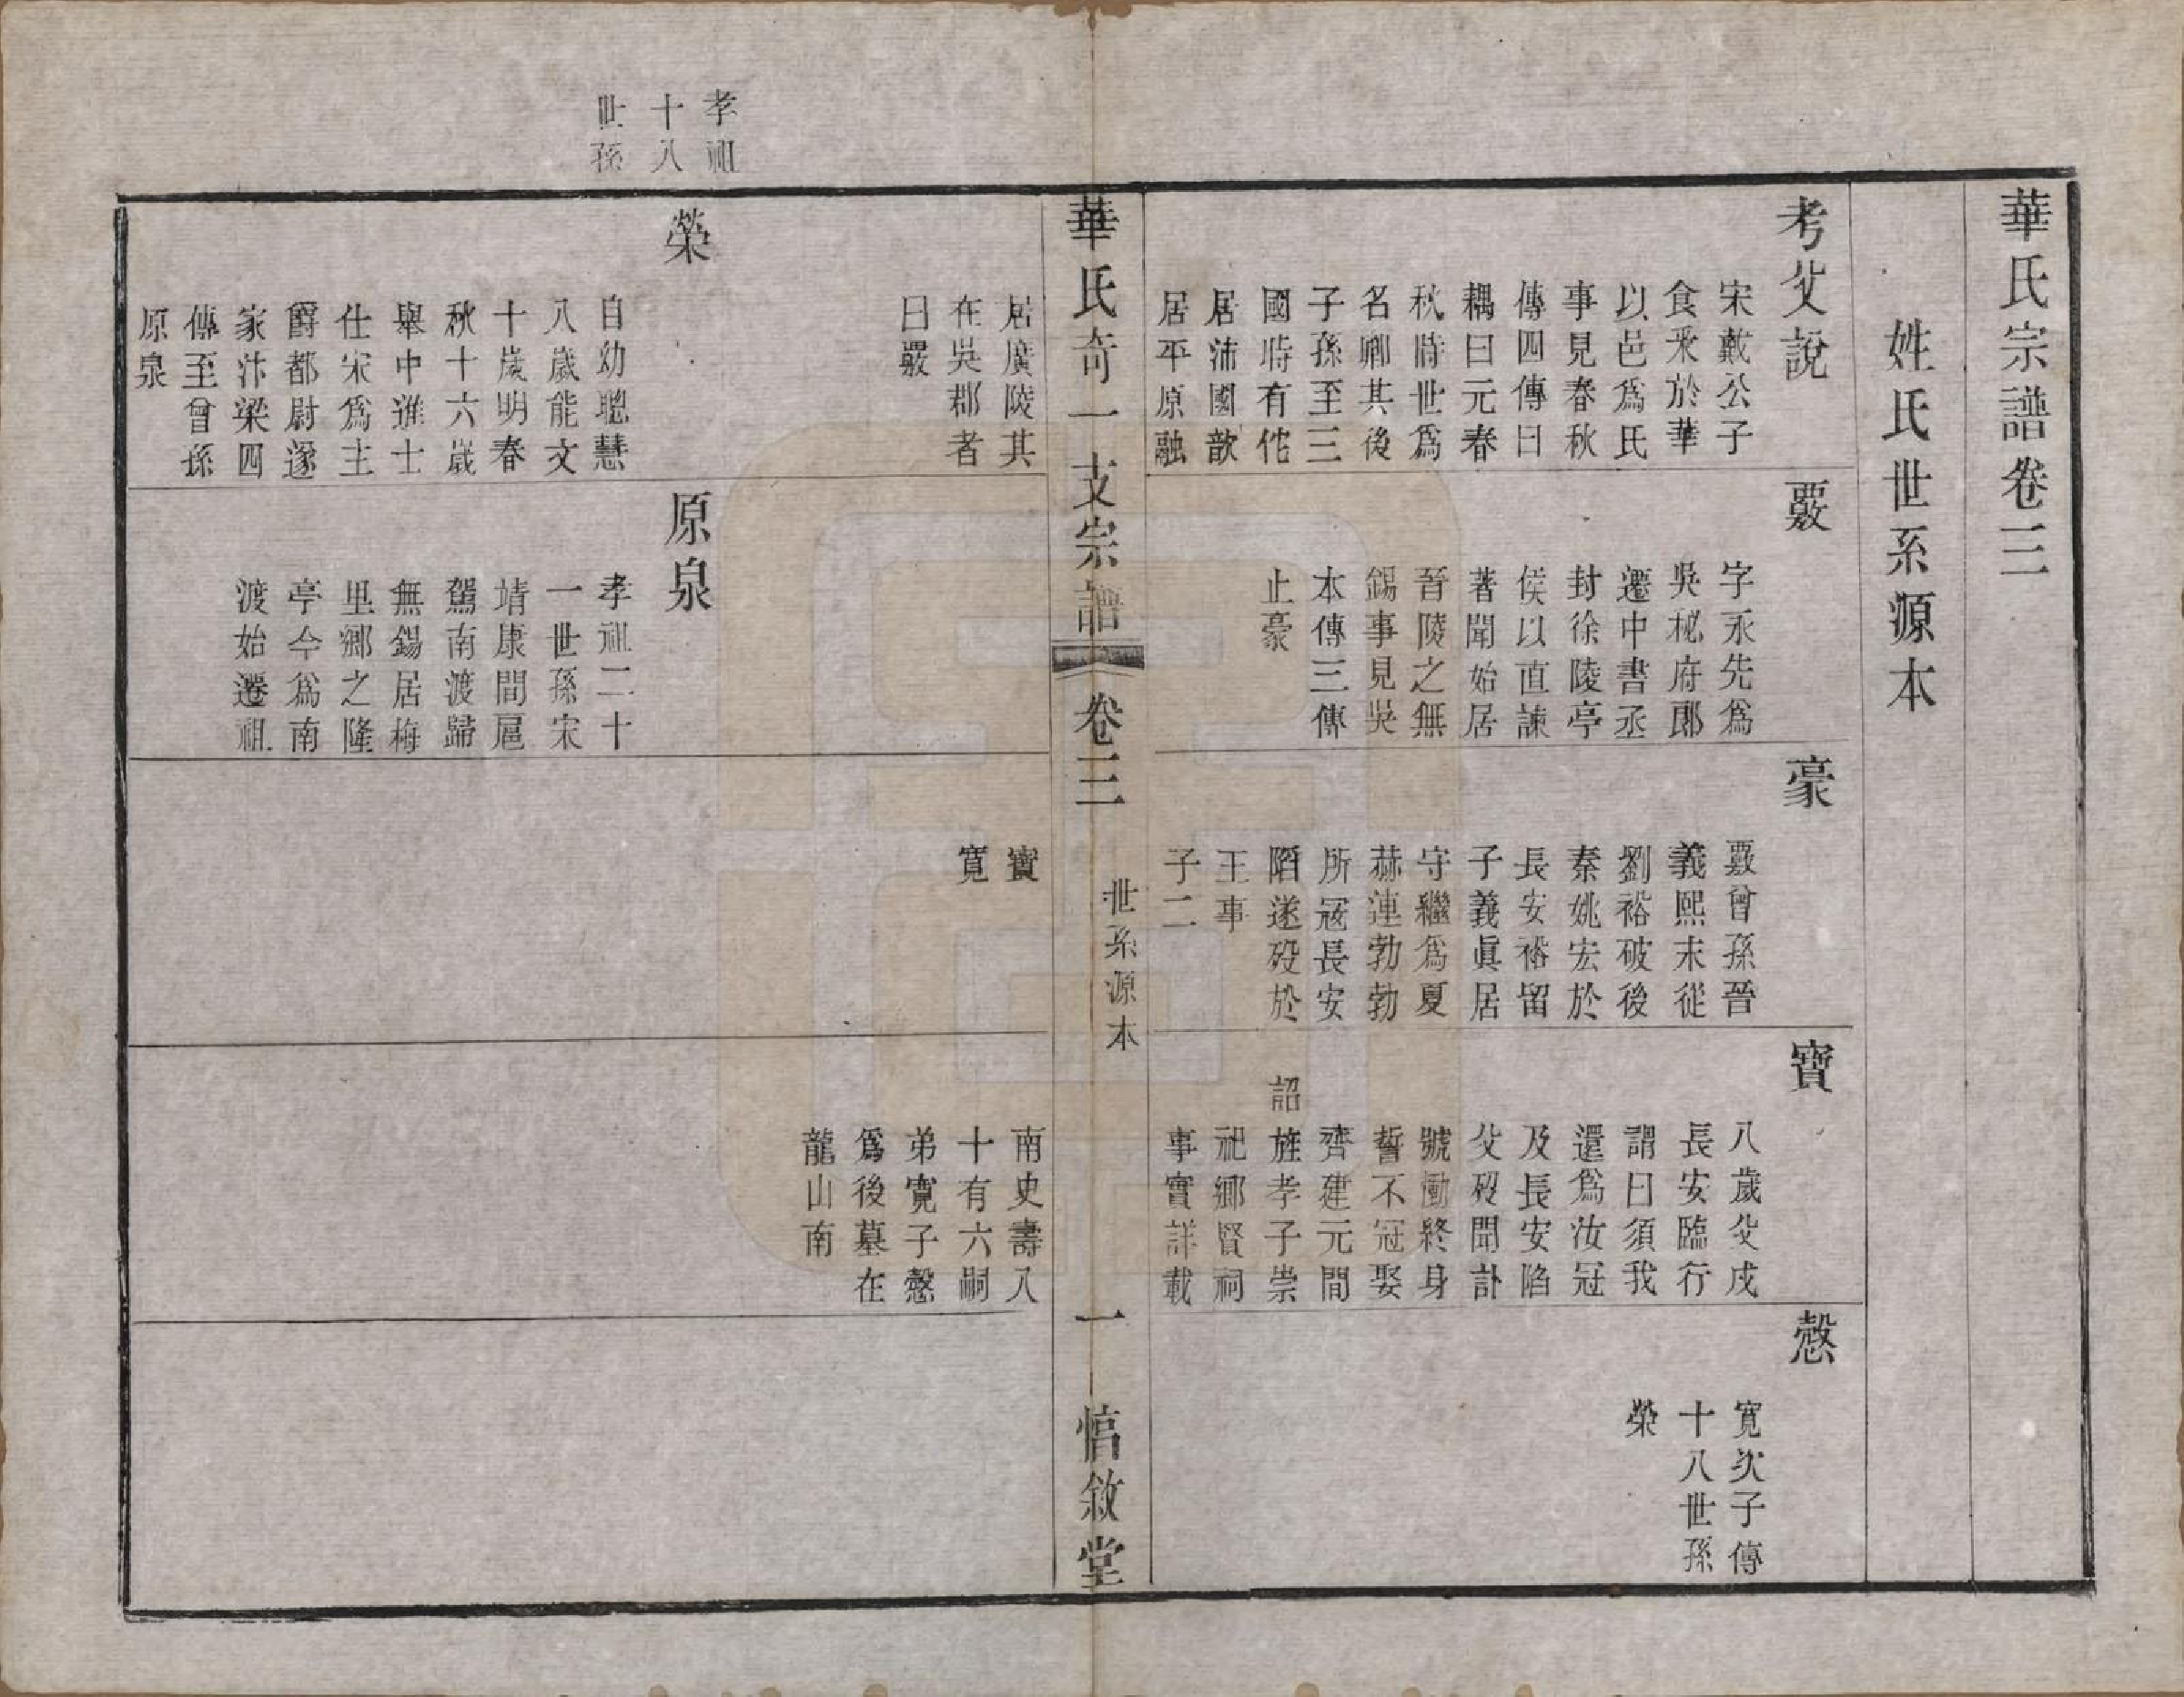 華氏宗譜卷三
姓氏世系源本
考父說
宋戴公子
食采於華
以邑爲氏
事見春秋
傳四傳曰
耦曰元春
秋時世爲
名卿其後
子孫至三
國時有佗
居沛國歆
居平原融
居廣陵其
在吳郡者
曰覈
覈
字永先爲
吳秘府郎
遷中書丞
封徐陵亭
侯以直諫
著聞始居
晉陵之無
錫事見吳
本傳三傳
止豪
豪
覈曾孫晉
義熙末從
劉裕破後
秦姚宏於
長安裕留
子義眞居
守繼爲夏
赫連勃勃
所冦長安
陷遂歿於
王事
子二
寶
寬
寶
八歲父戍
長安臨行
謂曰須我
還爲汝冠
及長安陷
父歿聞訃
號慟終身
誓不冠娶
齊建元間
詔旌孝子崇
祀鄉賢祠
事實詳載
南史壽八
十有六嗣
弟寬子慤
爲後墓在
龍山南
慤
寬次子傳
十八世孫
榮
華氏奇一支宗譜 卷三 世系源本 一 惇敘堂
孝祖
十八
世孫
榮
自幼聰慧
八歲能文
十歲明春
秋十六歲
舉中進士
仕宋爲主
爵都尉遂
家汴梁四
傳至曾孫
原泉
原泉
孝祖二十
一世孫宋
靖康間扈
駕南渡歸
無錫居梅
里鄉之隆
亭今爲南
渡始遷祖